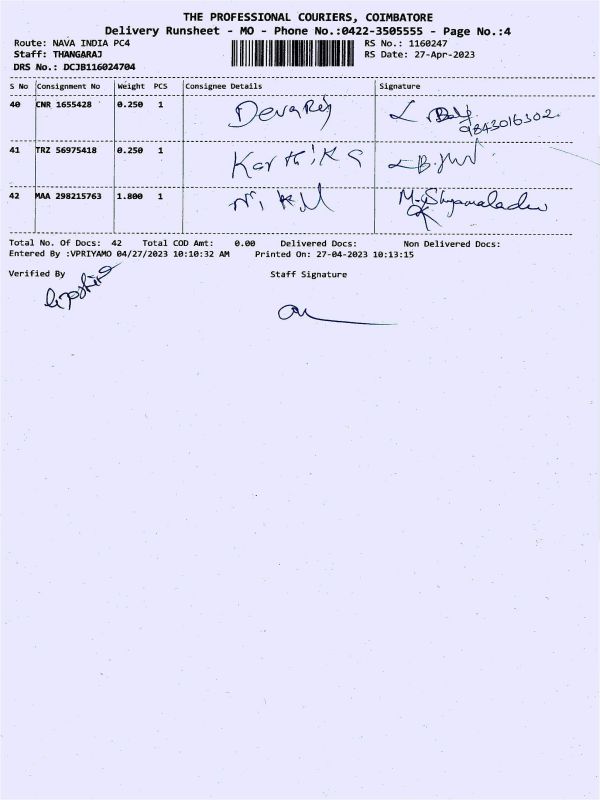 THE PROFESSIONAL COURIERS, COIMBATORE
Delivery Runsheet - MO - Phone No.:0422-3505555 - Page No.:4
Route: NAVA INDIA PC4 RS No.: 1160247
Staff: THANGARAJ RS Date: 27-Apr-2023
DRS No.: DCJB116024704
S No Consignment No Weight PCS Consignee Details Signature
40 CNR 1655428 0.250 1 Devaraj
9843016302
41 TRZ 56975418 0.250 1 Karthika
42 MAA 298215763 1.800 1 M. Shyamaladevi
Total No. Of Docs: 42 Total COD Amt: 0.00 Delivered Docs: Non Delivered Docs:
Entered By :VPRIYAMO 04/27/2023 10:10:32 AM Printed On: 27-04-2023 10:13:15
Verified By Staff Signature